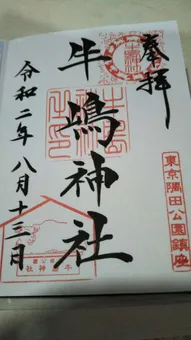 奉拝
牛嶋神社
令和二年八月十三日
東京隅田公園鎮座
牛嶋神社